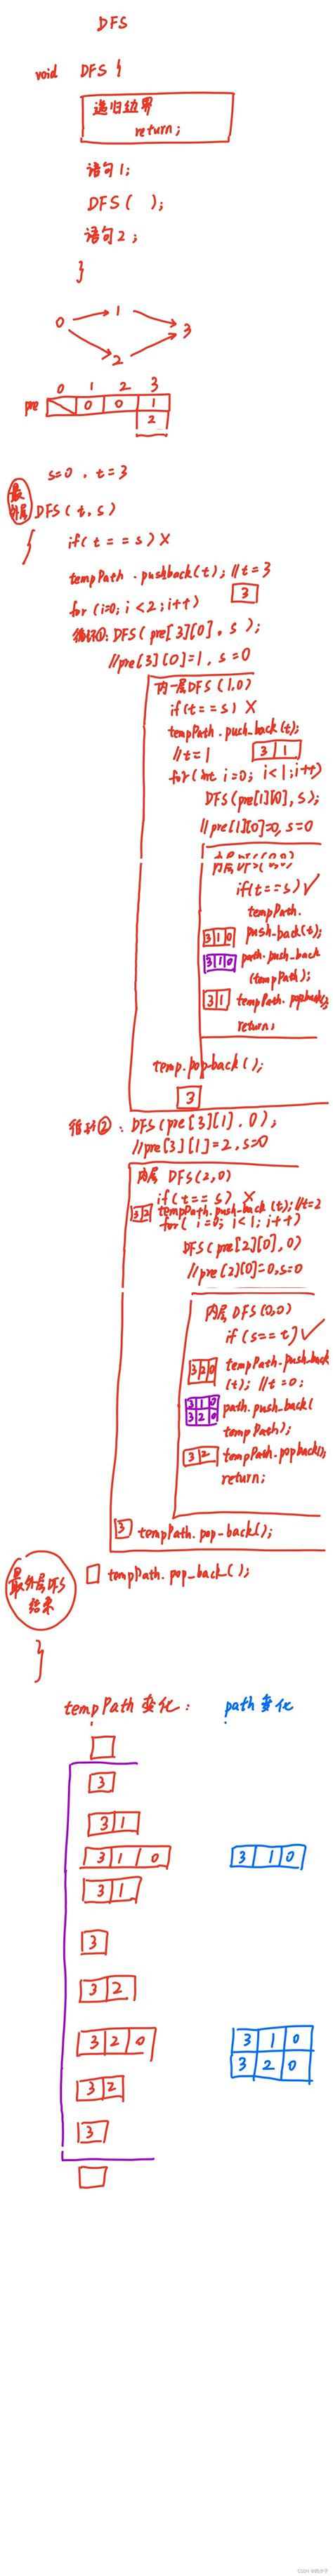 DFS
void DFS {
递归边界
return;
语句1;
DFS( );
语句2;
}
0 1 3
2
0 1 2 3
pre 0 0 1
2
s=0, t=3
最外层 DFS(t,s)
{
if(t==s) X
tempPath.pushback(t); //t=3
3
for(i=0;i<2;i++)
循环①: DFS(pre[3][0],s);
//pre[3][0]=1,s=0
内一层DFS(1,0)
if(t==s) X
tempPath.push_back(t);
//t=1 3 1
for(int i=0; i<1;i++)
DFS(pre[1][0],s);
//pre[1][0]=0,s=0
内层DFS(0,0)
if(t==s)✓
tempPath.
3 1 0 push_back(t);
3 1 0 path.push_back
(tempPath);
3 1 tempPath.popback();
return;
temp.popback();
3
循环②: DFS(pre[3][1],0);
//pre[3][1]=2,s=0
内层 DFS(2,0)
if(t==s) X
3 2 tempPath.push_back(t);//t=2
for( i=0; i<1; i++)
DFS(pre[2][0],0)
//pre[2][0]=0,s=0
内层 DFS(0,0)
if(s==t)✓
3 2 0 tempPath.push_back
(t); //t=0;
3 1 0 path.push_back(
3 2 0 tempPath);
3 2 tempPath.popback();
return;
3 tempPath.pop-back();
最外层DFS
结束
tempPath.pop_back();
}
tempPath变化: path变化
3
3 1
3 1 0 3 1 0
3 1
3
3 2
3 2 0 3 1 0
3 2 0
3 2
3